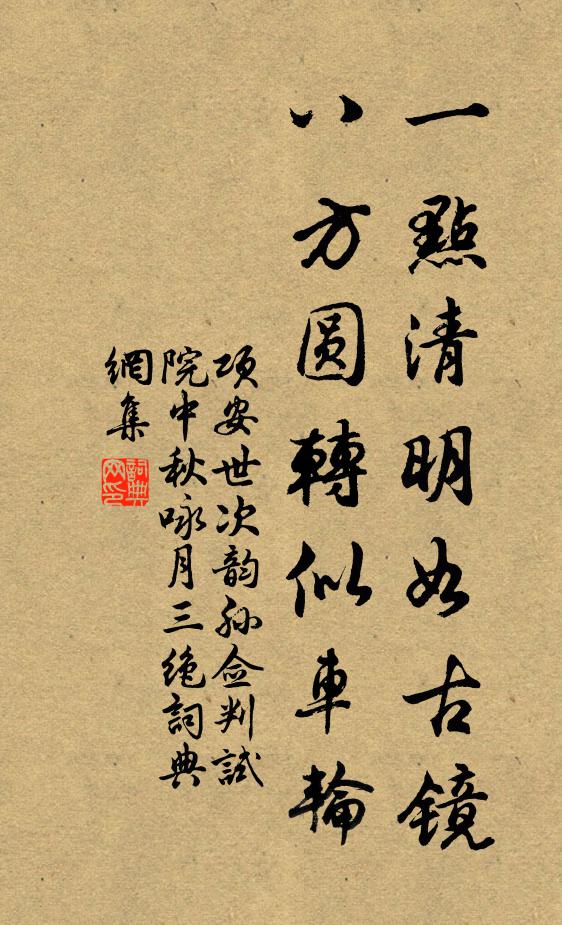 一點清明如古鏡
八方圓轉似車輪
項安世次韵孙佥判試
院中秋咏月三绝詞典
網集
詞典網印